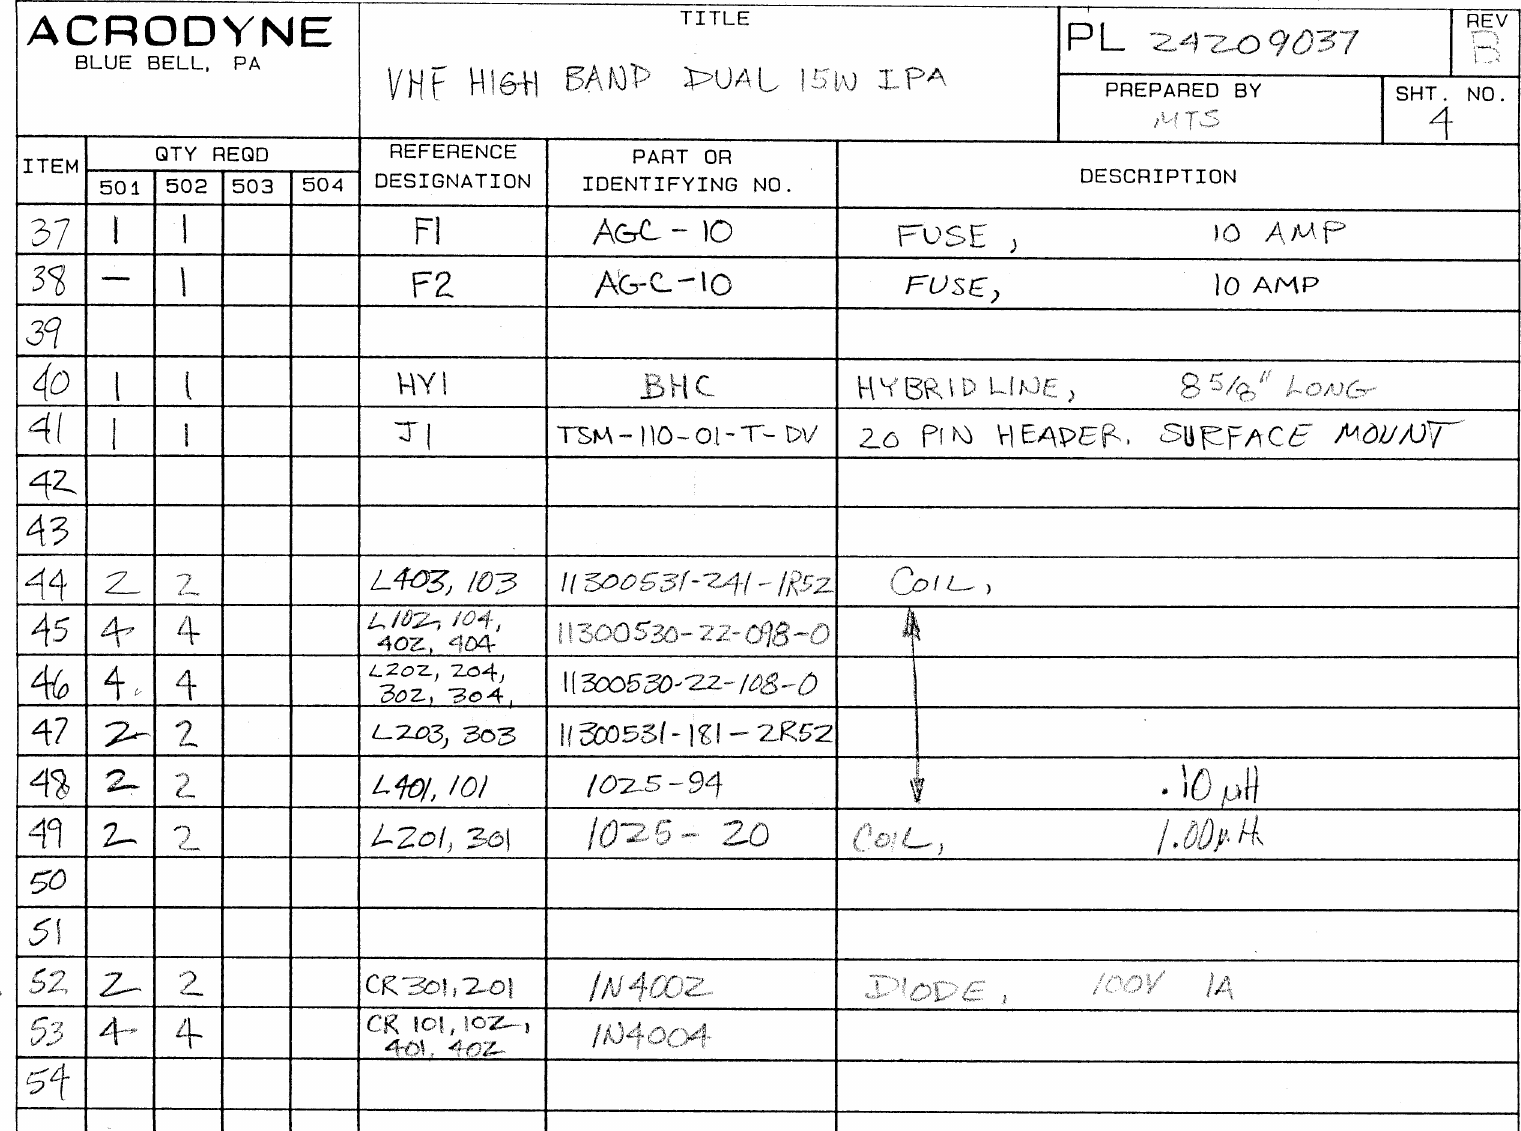 ACRODYNE
BLUE BELL, PA
TITLE
VHF HIGH BAND DUAL 15W IPA
PL 24209037
REV
B
PREPARED BY
MTS
SHT. NO.
4
ITEM QTY REQD REFERENCE DESIGNATION PART OR IDENTIFYING NO. DESCRIPTION
501 502 503 504
37 1 1 F1 AGC-10 FUSE, 10 AMP
38 — 1 F2 AGC-10 FUSE, 10 AMP
39
40 1 1 HY1 BHC HYBRID LINE, 8 5/8" LONG
41 1 1 J1 TSM-110-01-T-DV 20 PIN HEADER. SURFACE MOUNT
42
43
44 2 2 L403, 103 11300531-241-1R52 COIL,
45 4 4 L102, 104, 402, 404 11300530-22-098-0
46 4 4 L202, 204, 302, 304, 11300530-22-108-0
47 2 2 L203, 303 11300531-181-2R52
48 2 2 L401, 101 1025-94 .10 µH
49 2 2 L201, 301 1025-20 COIL, 1.00µH
50
51
52 2 2 CR301, 201 1N4002 DIODE, 100V 1A
53 4 4 CR 101, 102, 401, 402 1N4004
54